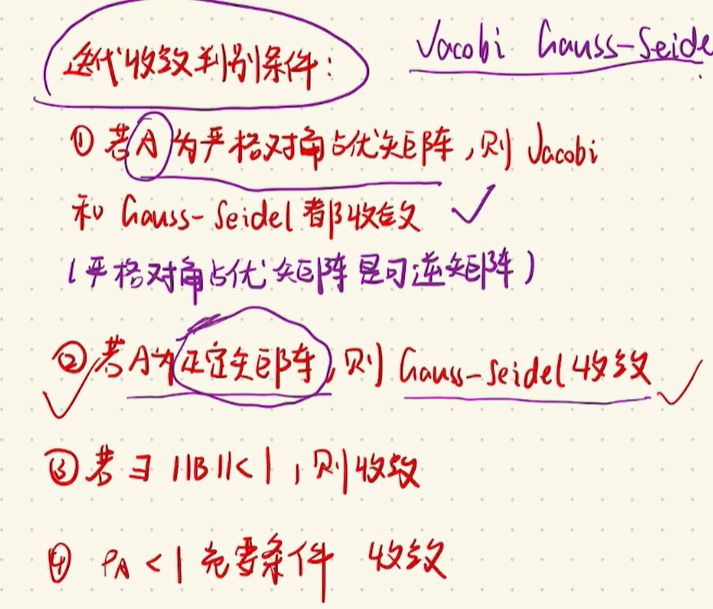 迭代收敛判别条件:
Jacobi Gauss-Seide
① 若A为严格对角占优矩阵,则 Jacobi
和 Gauss-Seidel 都收敛 ✓
(严格对角占优矩阵是可逆矩阵)
② 若A为正定矩阵,则 Gauss-Seidel 收敛 ✓
③ 若∃ ||B||<1,则收敛
④ ρA<1 充要条件 收敛